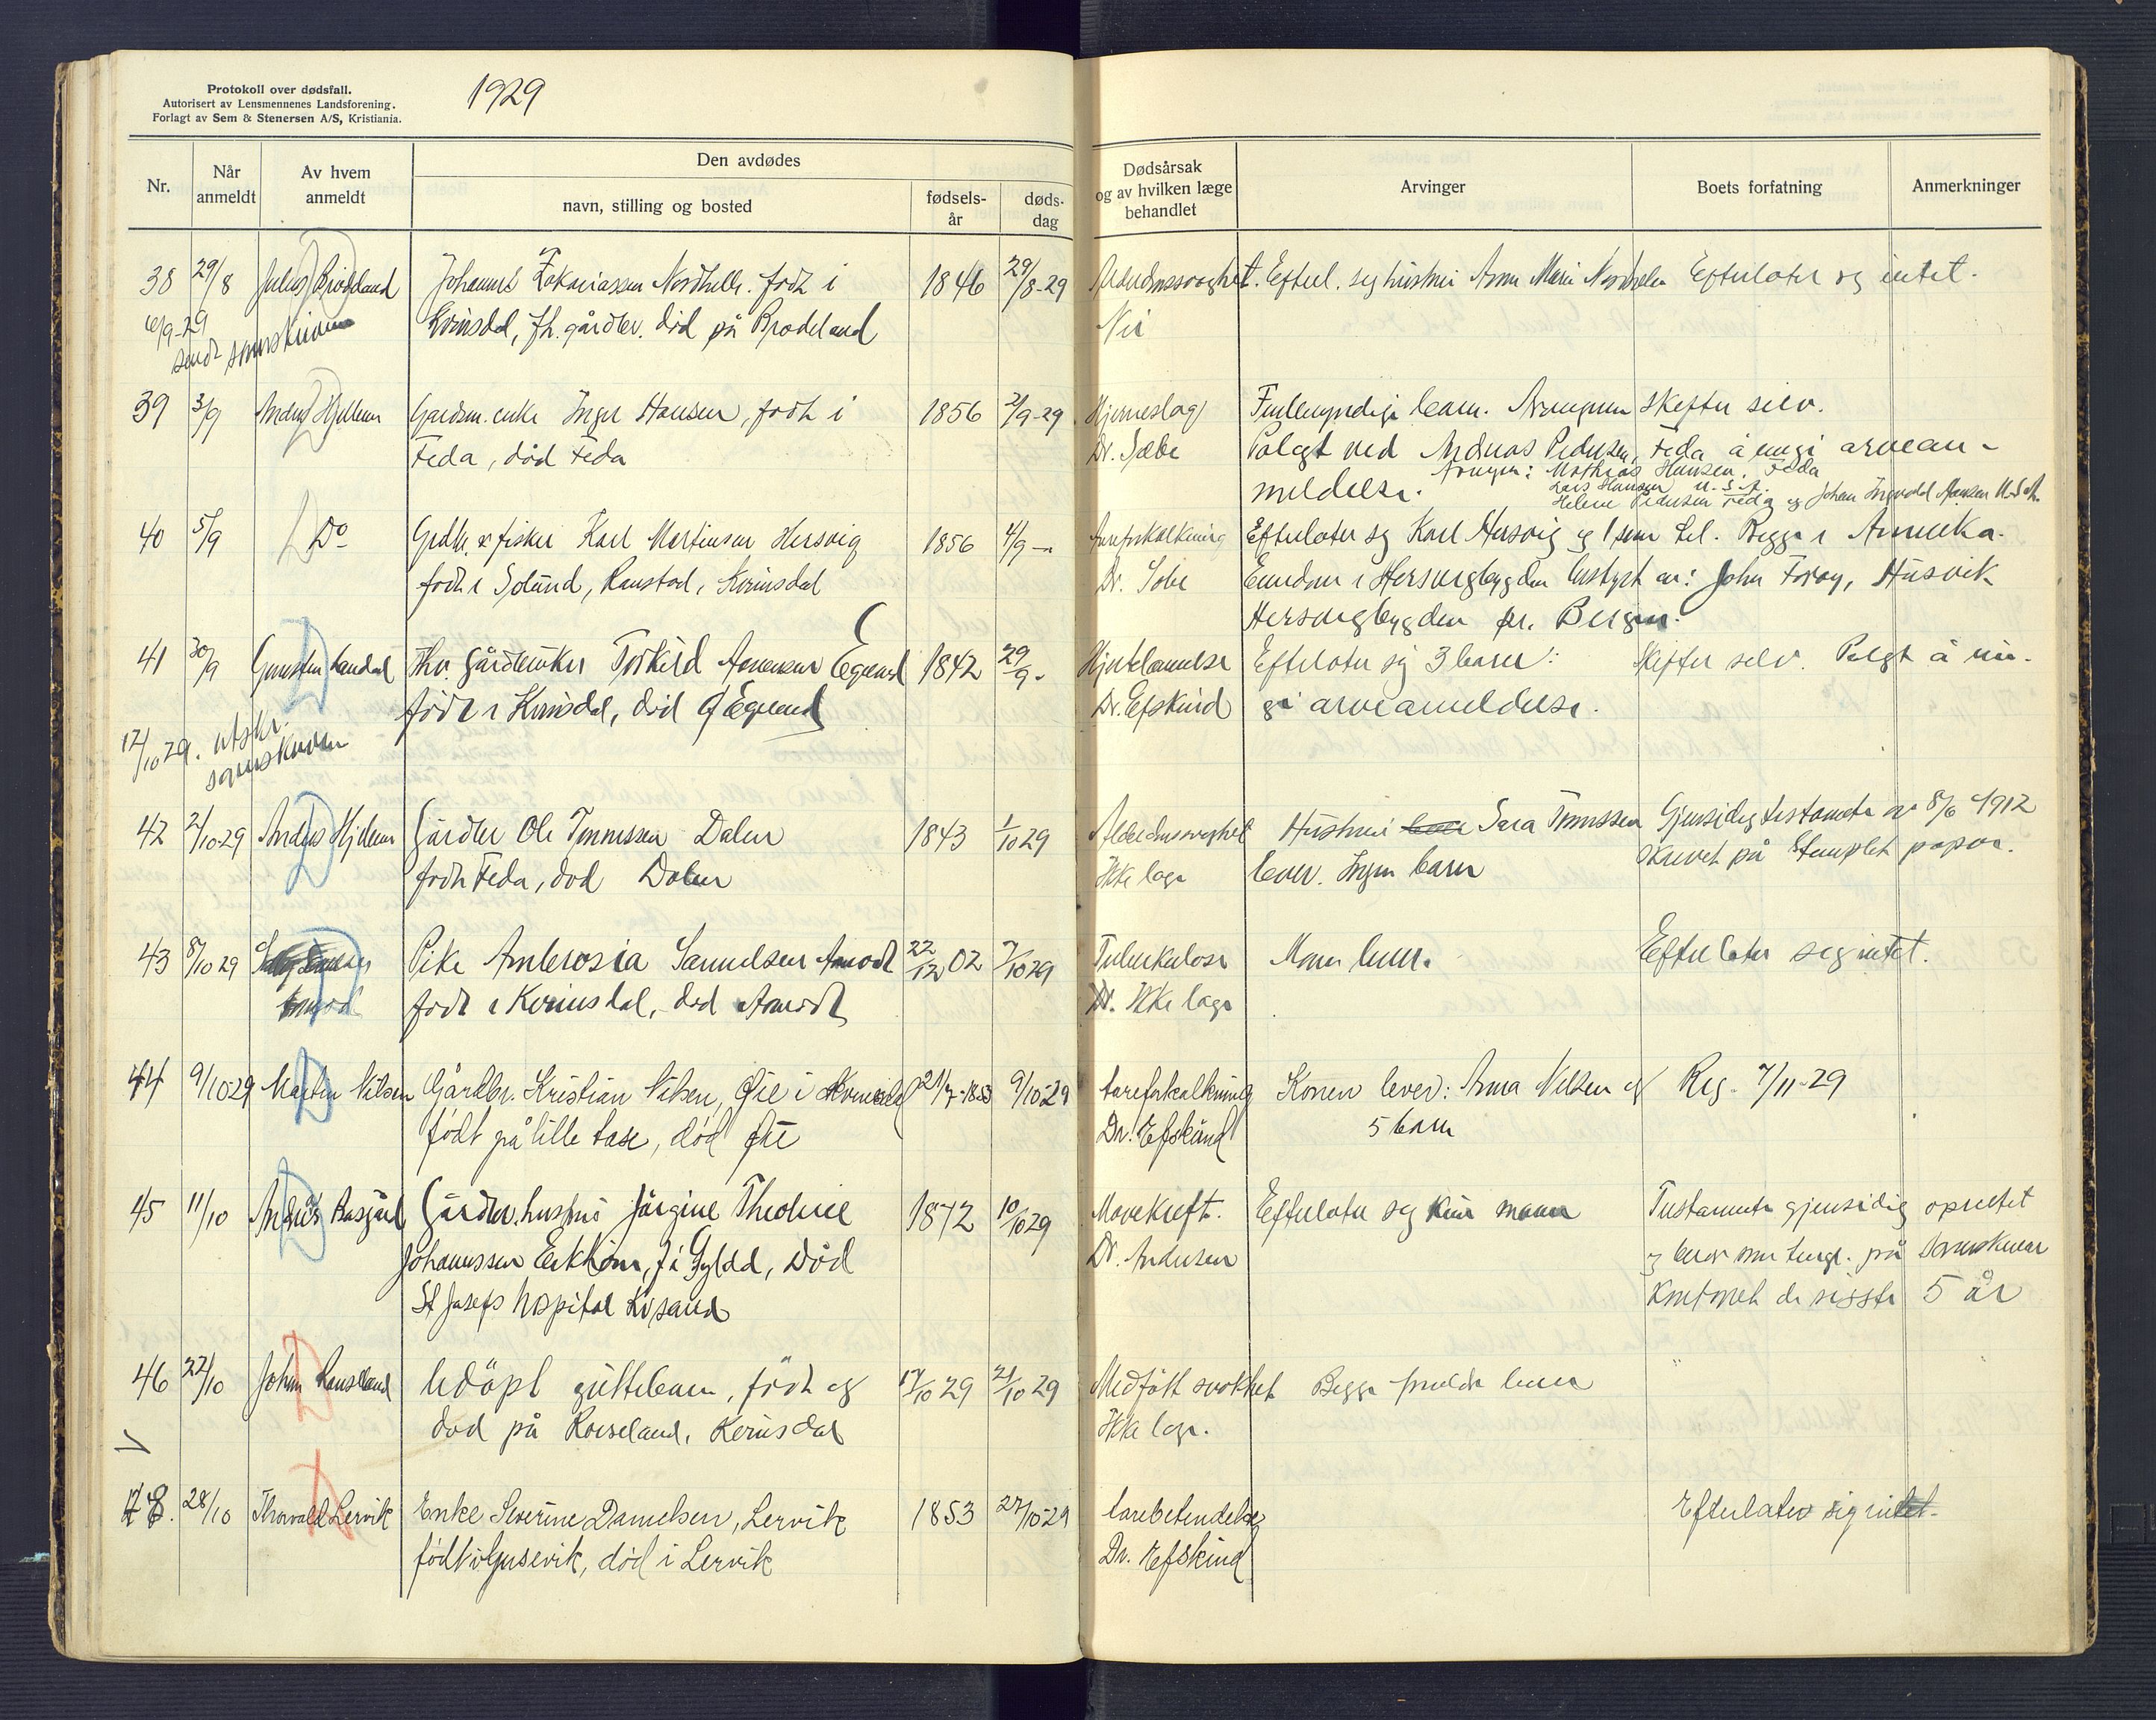 Protokoll over dødsfall.
Autorisert av Lensmennenes Landsforening.
Forlagt av Sem & Stenersen A/S, Kristiania.
1929
Nr.
Når anmeldt
Av hvem anmeldt
Den avdødes
navn, stilling og bosted
fødsels-år
døds-dag
Dødsårsak og av hvilken læge behandlet
Arvinger
Boets forfatning
Anmerkninger
38 29/8 Julius Brodeland Johannes Zakariassen født i 1846 29/8-29 Efterl. sig hustru Anna Marie Efterlater sig intet.
6/9-29 Kvinsdal, fh. gårdbr. død på Brodeland Nei
sendt sorenskriveren
39 3/9 Andreas Hjellem Gardm. enke Inger Hansen, født i 1856 2/9-29 Hjerneslag Fuldmyndige barn. skifter selv.
Feda, død Feda Dr. Sæbe Pålegt ved Andreas Pedersen, Feda å inngi arvean-
meldelse. Arvinger: Mathias Hansen, Feda
Lars Hansen U.S.A.
Helene Pedersen Feda og Johan Ingvald Hansen U.S.A.
40 5/9 Do Grdbr. & fisker Karl Martinsen Hersvig 1856 4/9 -" Åreforkalkning Efterlater sig Karl Hersvig og 1 søn til. Begge i Amerika.
født i Solund, Kvinsdal Dr. Eiendom i Hersvigbygden bestyrt av: John Forøy, Husvik
Hersvigbygden pr. Bergen.
41 30/9 Gunsten Landal Fhv. gårdbruker Torkild Egeland 1842 29/9 - Hjertelammelse Efterlater sig 3 barn: Skifter selv. Pålegt å inn-
født i Kvinsdal, død Egeland Dr. Efskind gi arveanmeldelse.
12/10 29. utskr. sorenskriveren
42 2/10-29 Andreas Hjellem Gårdbr Ole Tønnessen Dalen 1843 1/10 29 Alderdomssvaghet Hustru Sara Tønnessen Gjensidig testamente av 8/6 1912
født Feda, død Dalen Ikke læge lever. Ingen barn skrevet på stemplet papir.
43 8/10 29 Pike Ambrosia Samuelsen Åmodt 22/12 02 7/10 29 Tuberkulose Moren lever. Efterlater seg intet.
født i Kvinsdal, død Åmodt Dr. Ikke læge
44 9/10-29 Martin Nilsen Gårdbr. Kristian Nilsen, Øie i Kvinesdal 21/7-1853 9/10-29 Åreforkalkning Konen lever: Anna Nilsen og Reg. 7/11-29
født på lille , død Øie Dr. Efskind 5 barn
45 11/10 Andreas Gårdbr. hustru Jørgine Theoline 1872 10/10 29 Mavekreft. Efterlater seg kun mann Testamente gjensidig oprettet
Johannessen f. i Fyldd, død Dr. Andersen og beror tingl. på sorenskriver
St Josefs hospital Krsand kontoret de sisste 5 år
46 22/10 Johan Rauseland Udøpt guttebarn, født og 17/10 29 21/10 29 Medfødt svakhet Begge foreldre lever "
død på , Kvinsdal Ikke læge.
48. 28/10 Thorvald Lervik Enke Severine Danielsen, Lervik 1853 27/10-29 Årebetendelse Efterlater sig intet.
født i Gusevik, død i Lervik Dr. Efskind